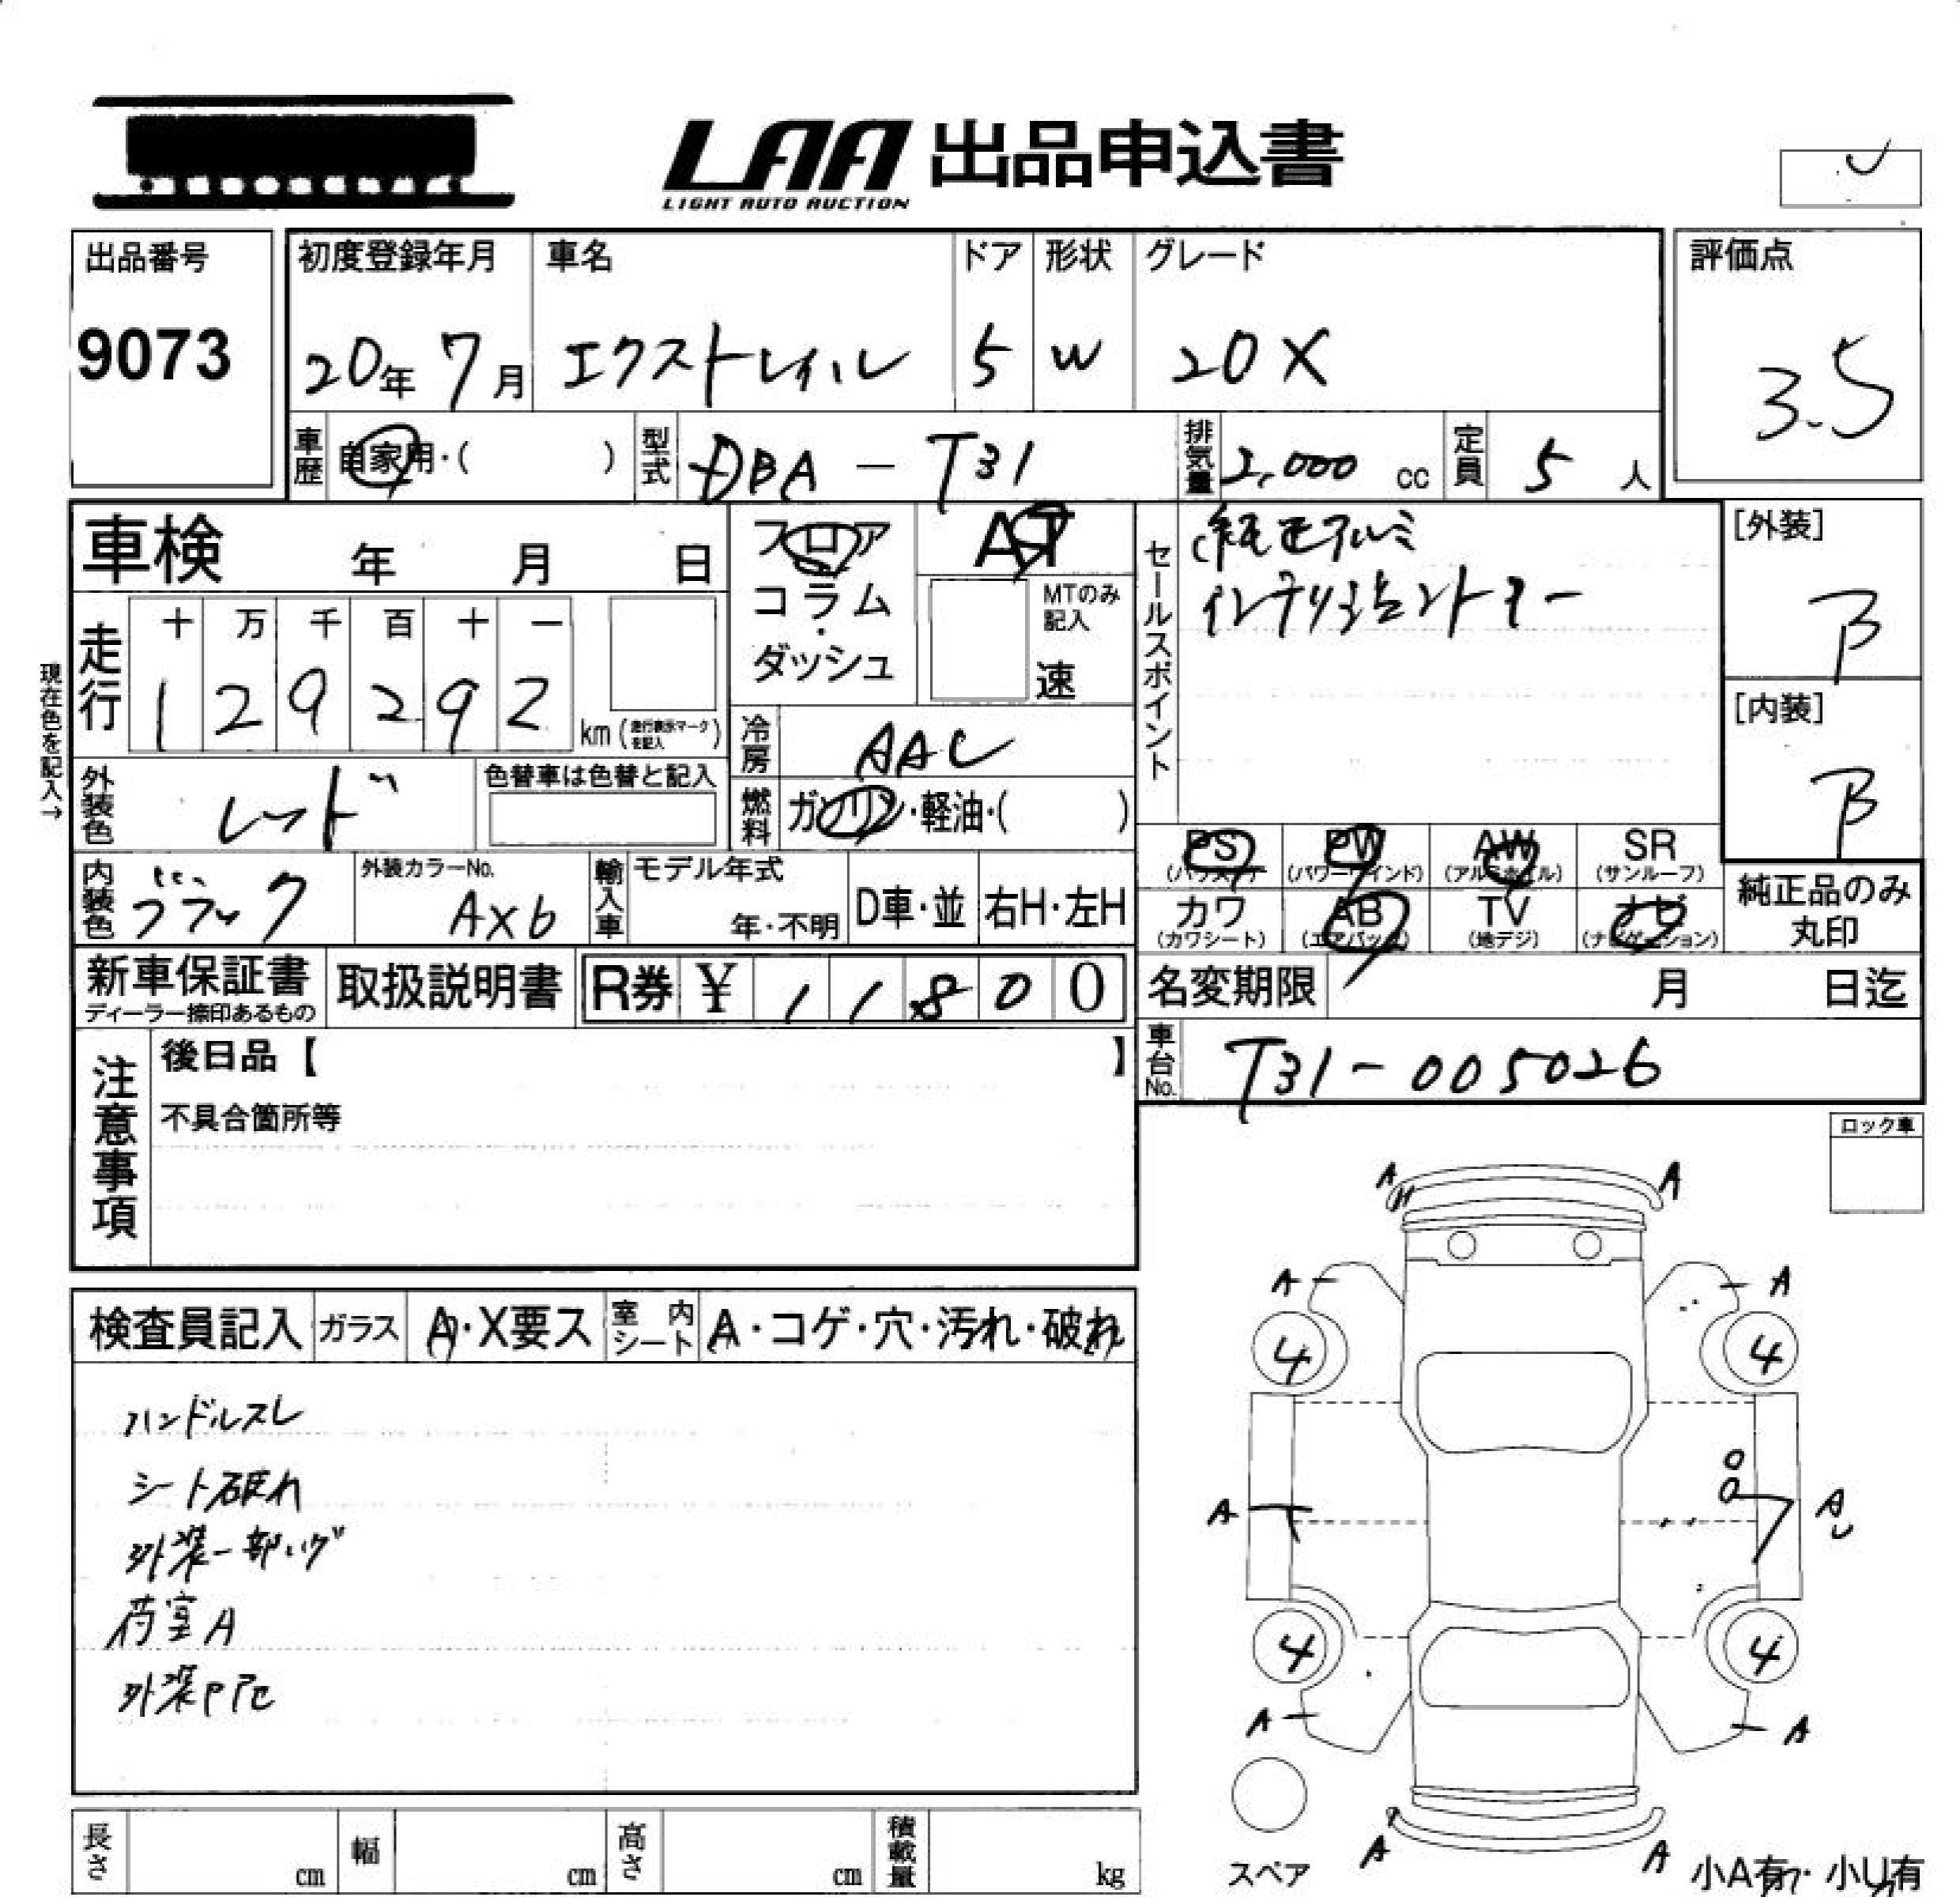 LAA 出品申込書
LIGHT AUTO AUCTION
出品番号
9073
初度登録年月
20年 7月
車名
エクストレイル
ドア
5
形状
W
グレード
20X
評価点
3.5
車歴
自家用・( )
型式
DBA-T31
排気量
2,000 cc
定員
5 人
車検 年 月 日
現在色を記入→
走行
十 万 千 百 十 一
1 2 9 2 9 2
km (走行表示マークを記入)
フロア
コラム
・
ダッシュ
AT
MTのみ記入
速
セールスポイント
純正アルミ
インテリジェントキー
[外装]
B
[内装]
B
冷房
AAC
燃料
ガソリン・軽油・( )
外装色
レッド
色替車は色替と記入
内装色
ブラック
外装カラーNo.
AX6
輸入車
モデル年式
年・不明
D車・並
右H・左H
PS
(パワステ)
PW
(パワーウインド)
AW
(アルミホイル)
SR
(サンルーフ)
カワ
(カワシート)
AB
(エアバック)
TV
(地デジ)
ナビ
(ナビゲーション)
純正品のみ
丸印
新車保証書
ディーラー捺印あるもの
取扱説明書
R券 ¥ 1 1 8 0 0
名変期限 月 日迄
車台No.
T31-005026
注意事項
後日品【 】
不具合箇所等
ロック車
検査員記入
ガラス
A・X要ス
室内シート
A・コゲ・穴・汚れ・破れ
ハンドルスレ
シート破れ
荷室A
A A
A A
4 4
A A
4 4
A A
A A
スペア
小A有・小U有
長さ cm
幅 cm
高さ cm
積載量 kg